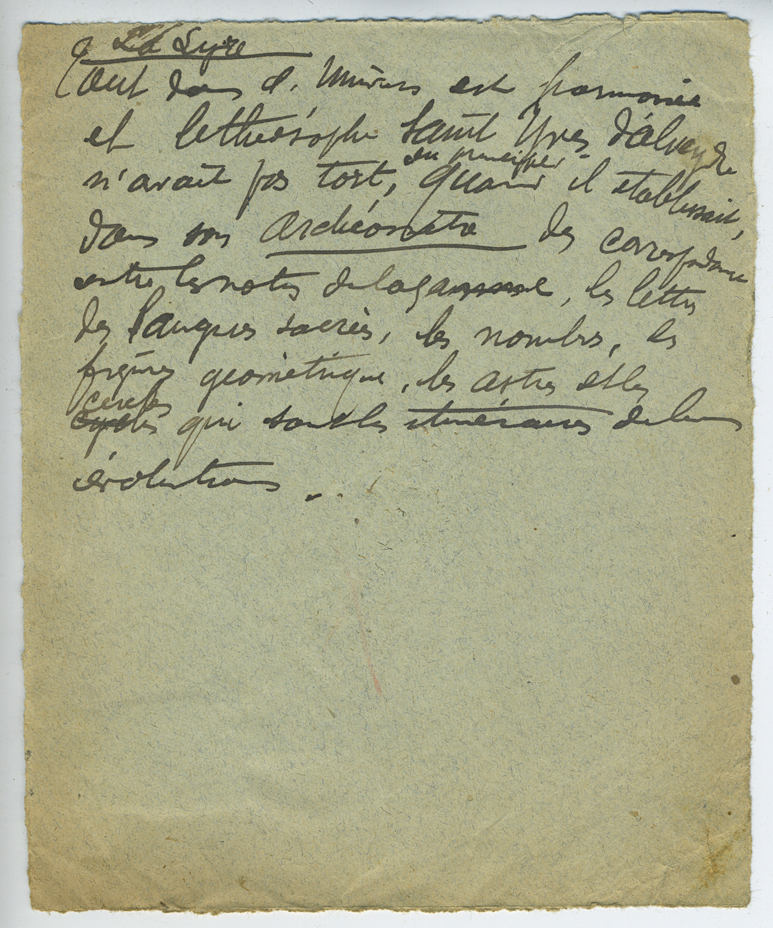 La Lyre
Tout dans l'Univers est harmonie
et le théosophe Saint Yves d'Alveydre
n'avait pas tort, en principe, quand il etablissait,
dans son Archéomètre des correspondances
entre les notes de la gamme, les lettres
des langues sacrées, les nombres, les
figures géométrique, les astres et les
cercles
cycles qui sont les itinéraires de leurs
évolutions...